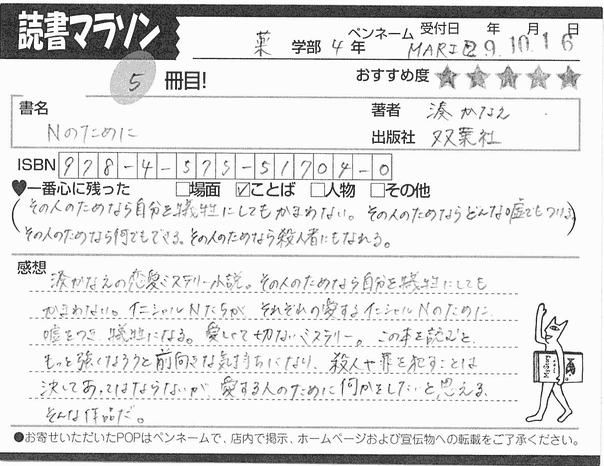 読書マラソン
薬 学部 4年
ペンネーム MARIE
受付日 年 月 日
29.10.16
5 冊目!
おすすめ度 ★★★★★
書名
Nのために
著者 湊かなえ
出版社 双葉社
ISBN 978-4-575-51704-0
♥一番心に残った □場面 ☑ことば □人物 □その他
(その人のためなら自分を犠牲にしてもかまわない。その人のためならどんな嘘でもつける
その人のためなら何でもできる。その人のためなら殺人者にもなれる。)
感想
湊かなえの恋愛ミステリー小説。その人のためなら自分を犠牲にしても
かまわない。イニシャルNたちが、それぞれの愛するイニシャルNのために
嘘をつき犠牲になる。愛しくて切ないミステリー。この本を読むと、
もっと強くなろうと前向きな気持ちになり、殺人や罪を犯すことは
決してあってはならないが、愛する人のために何かをしたいと思える、
そんな作品だ。
●お寄せいただいたPOPはペンネームで、店内で掲示、ホームページおよび宣伝物への転載をご了承ください。